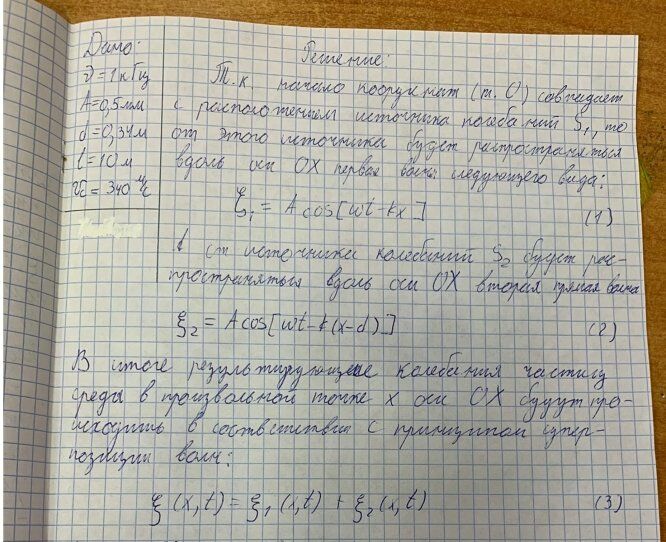 Дано:
Решение:
ν = 1 кГц
Т.к. начало координат (т. О) совпадает
A = 0,5 мм
с расположением источника колебаний S₁, то
d = 0,34 м
от этого источника будет распространяться
l = 10 м
вдоль оси OX первая волна следующего вида:
= 340 м/с
ξ₁ = A cos[ωt - kx] (1)
А от источника колебаний S₂ будет рас-
пространяться вдоль оси OX вторая прямая волна
ξ₂ = A cos[ωt - k(x-d)] (2)
В итоге результирующие колебания частиц
среды в произвольной точке x оси OX будут про-
исходить в соответствии с принципом супер-
позиции волн:
ξ(x,t) = ξ₁(x,t) + ξ₂(x,t) (3)